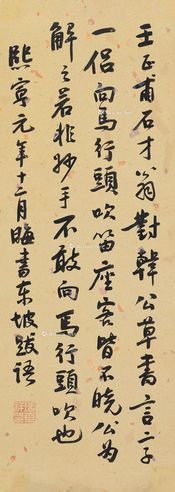 王正甫石才翁對韓公草書言二子
一佀向馬行頭吹笛座客皆不曉公為
解之若非妙手不敢向馬行頭吹也
熙寧元年十二月晦書東坡跋語